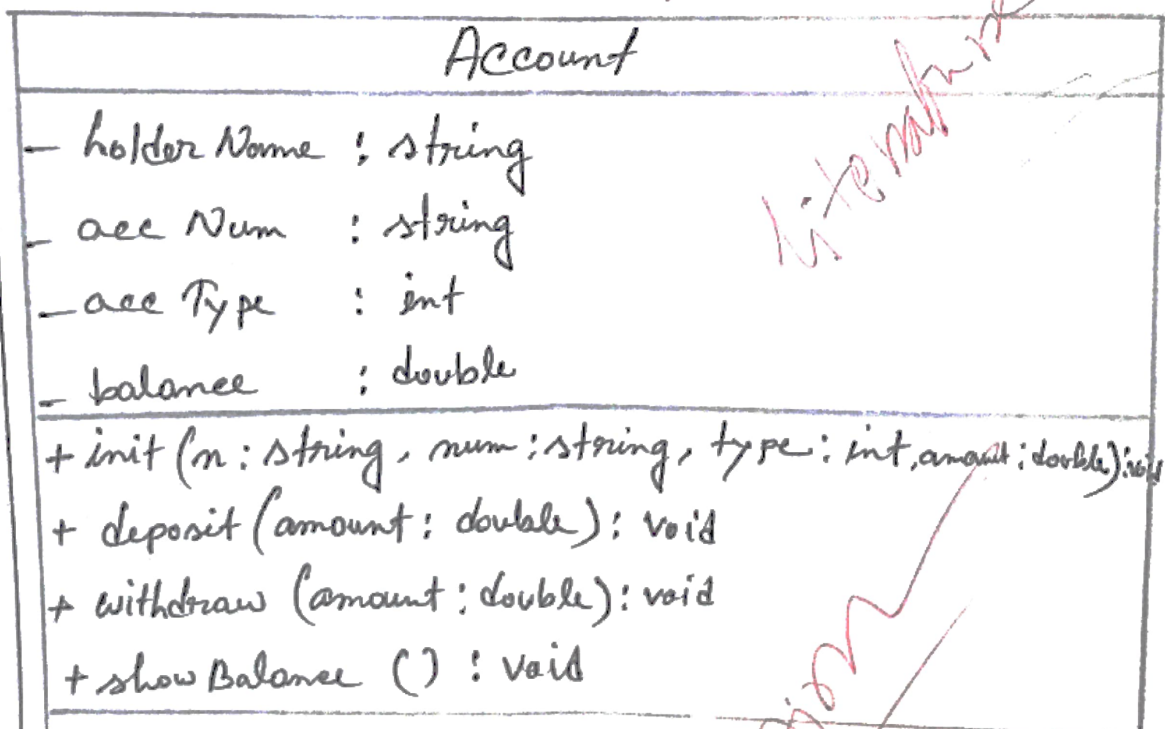 Account
- holderName : string
- accNum : string
- accType : int
- balance : double
+ init(n : string, num : string, type : int, amount : double) : void
+ deposit(amount : double) : void
+ withdraw (amount : double) : void
+ showBalance () : void
literature